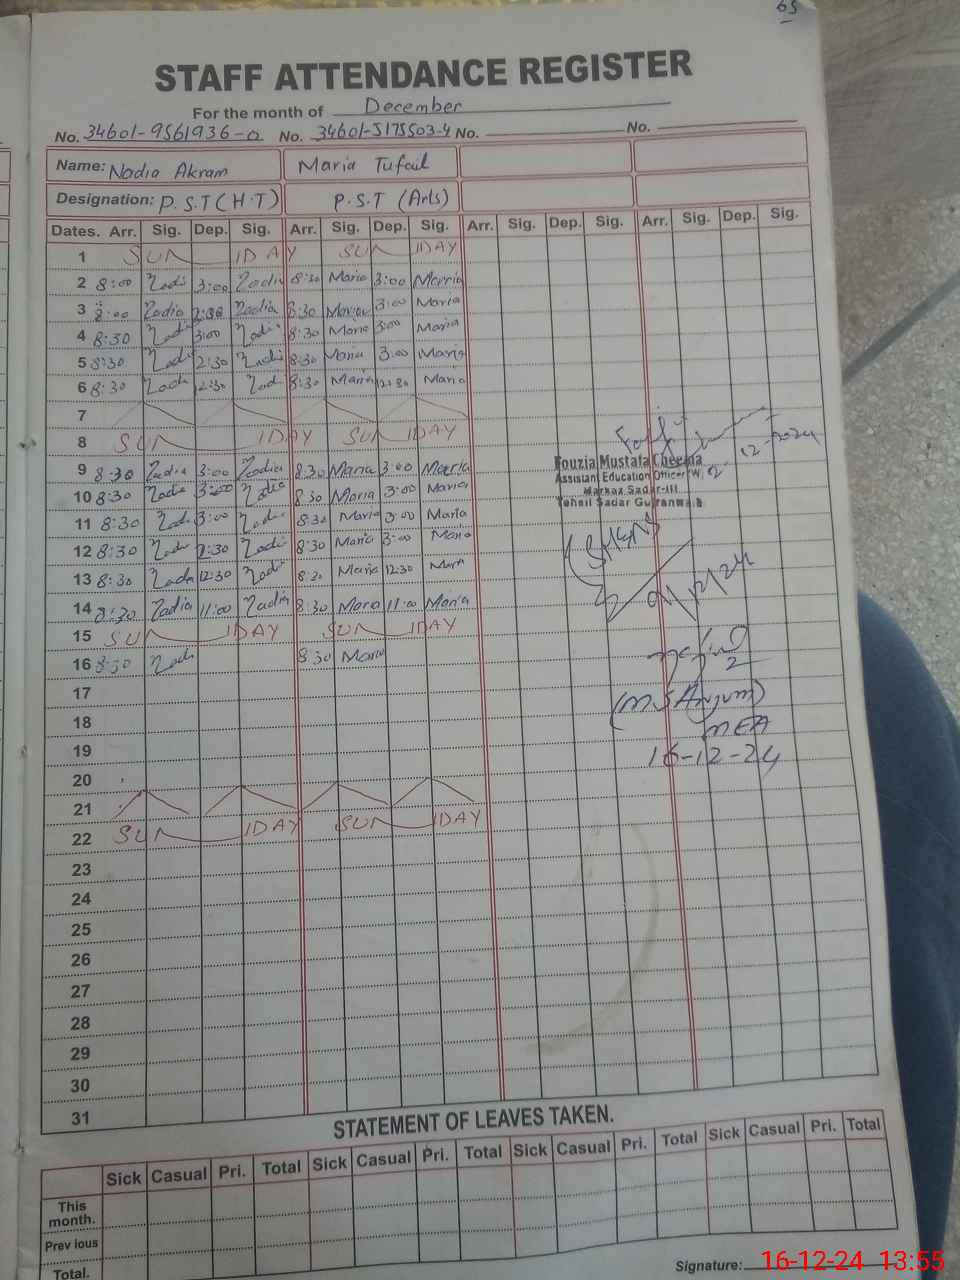 65
STAFF ATTENDANCE REGISTER
For the month of December
No. 34601-9561936-0 No. 34601-5175503-4 No. No.
Name: Nadia Akram Maria Tufail
Designation: P.S.T (H.T) P.S.T (Arts)
Dates. Arr. Sig. Dep. Sig. Arr. Sig. Dep. Sig. Arr. Sig. Dep. Sig. Arr. Sig. Dep. Sig.
1 SUN DAY SUN DAY
2 8:00 Nadia 3:00 Nadia 8:30 Maria 3:00 Maria
3 8:00 Nadia Nadia 8:30 Maria 3:00 Maria
4 8:30 Nadia 3:00 Nadia 8:30 Maria 3:00 Maria
5 8:30 Nadia 2:30 Nadia 8:30 Maria 3:00 Maria
6 8:30 Nadia 12:30 Nadia 8:30 Maria 12:30 Maria
7
8 SUN DAY SUN DAY
9 8:30 Nadia 3:00 Nadia 8:30 Maria 3:00 Maria
10 8:30 Nadia 3:00 Nadia 8:30 Maria 3:00 Maria
11 8:30 Nadia 3:00 Nadia 8:30 Maria 3:00 Maria
12 8:30 Nadia 2:30 Nadia 8:30 Maria 3:00 Maria
13 8:30 Nadia 12:30 Nadia 8:30 Maria 12:30 Maria
14 8:30 Nadia 11:00 Nadia 8:30 Maria 11:00 Maria
15 SUN DAY SUN DAY
16 8:30 Nadia 8:30 Maria
17
18
19
20
21
22 SUN DAY SUN DAY
23
24
25
26
27
28
29
30
31
12-2024
Fouzia Mustafa Cheema
Assistant Education Officer (W)
Markaz Sadar-III
Tehsil Sadar Gujranwala
(M S Anjum)
MEA
16-12-24
STATEMENT OF LEAVES TAKEN.
Sick Casual Pri. Total Sick Casual Pri. Total Sick Casual Pri. Total Sick Casual Pri. Total
This
month.
Prev ious
Total.
Signature:
16-12-24 13:55